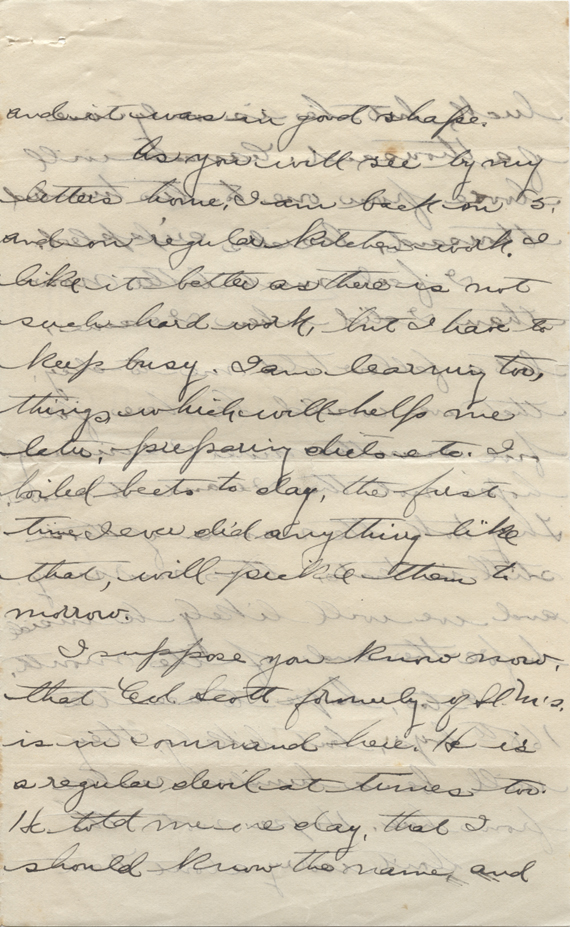 and it was in good shape.
As you will see by my
letters home, I am back on 5,
and on regular kitchen work. I
like it better as there is not
such hard work, but I have to
keep busy. I am learning too,
things which will help me
later, preparing diets etc. I
boiled beets to day, the first
time I ever did anything like
that, will pickle them to
morrow.
I suppose you know now,
that Col Scott formerly of
is in command here. He is
a regular devil at times too.
He told me one day, that I
should know the name, and